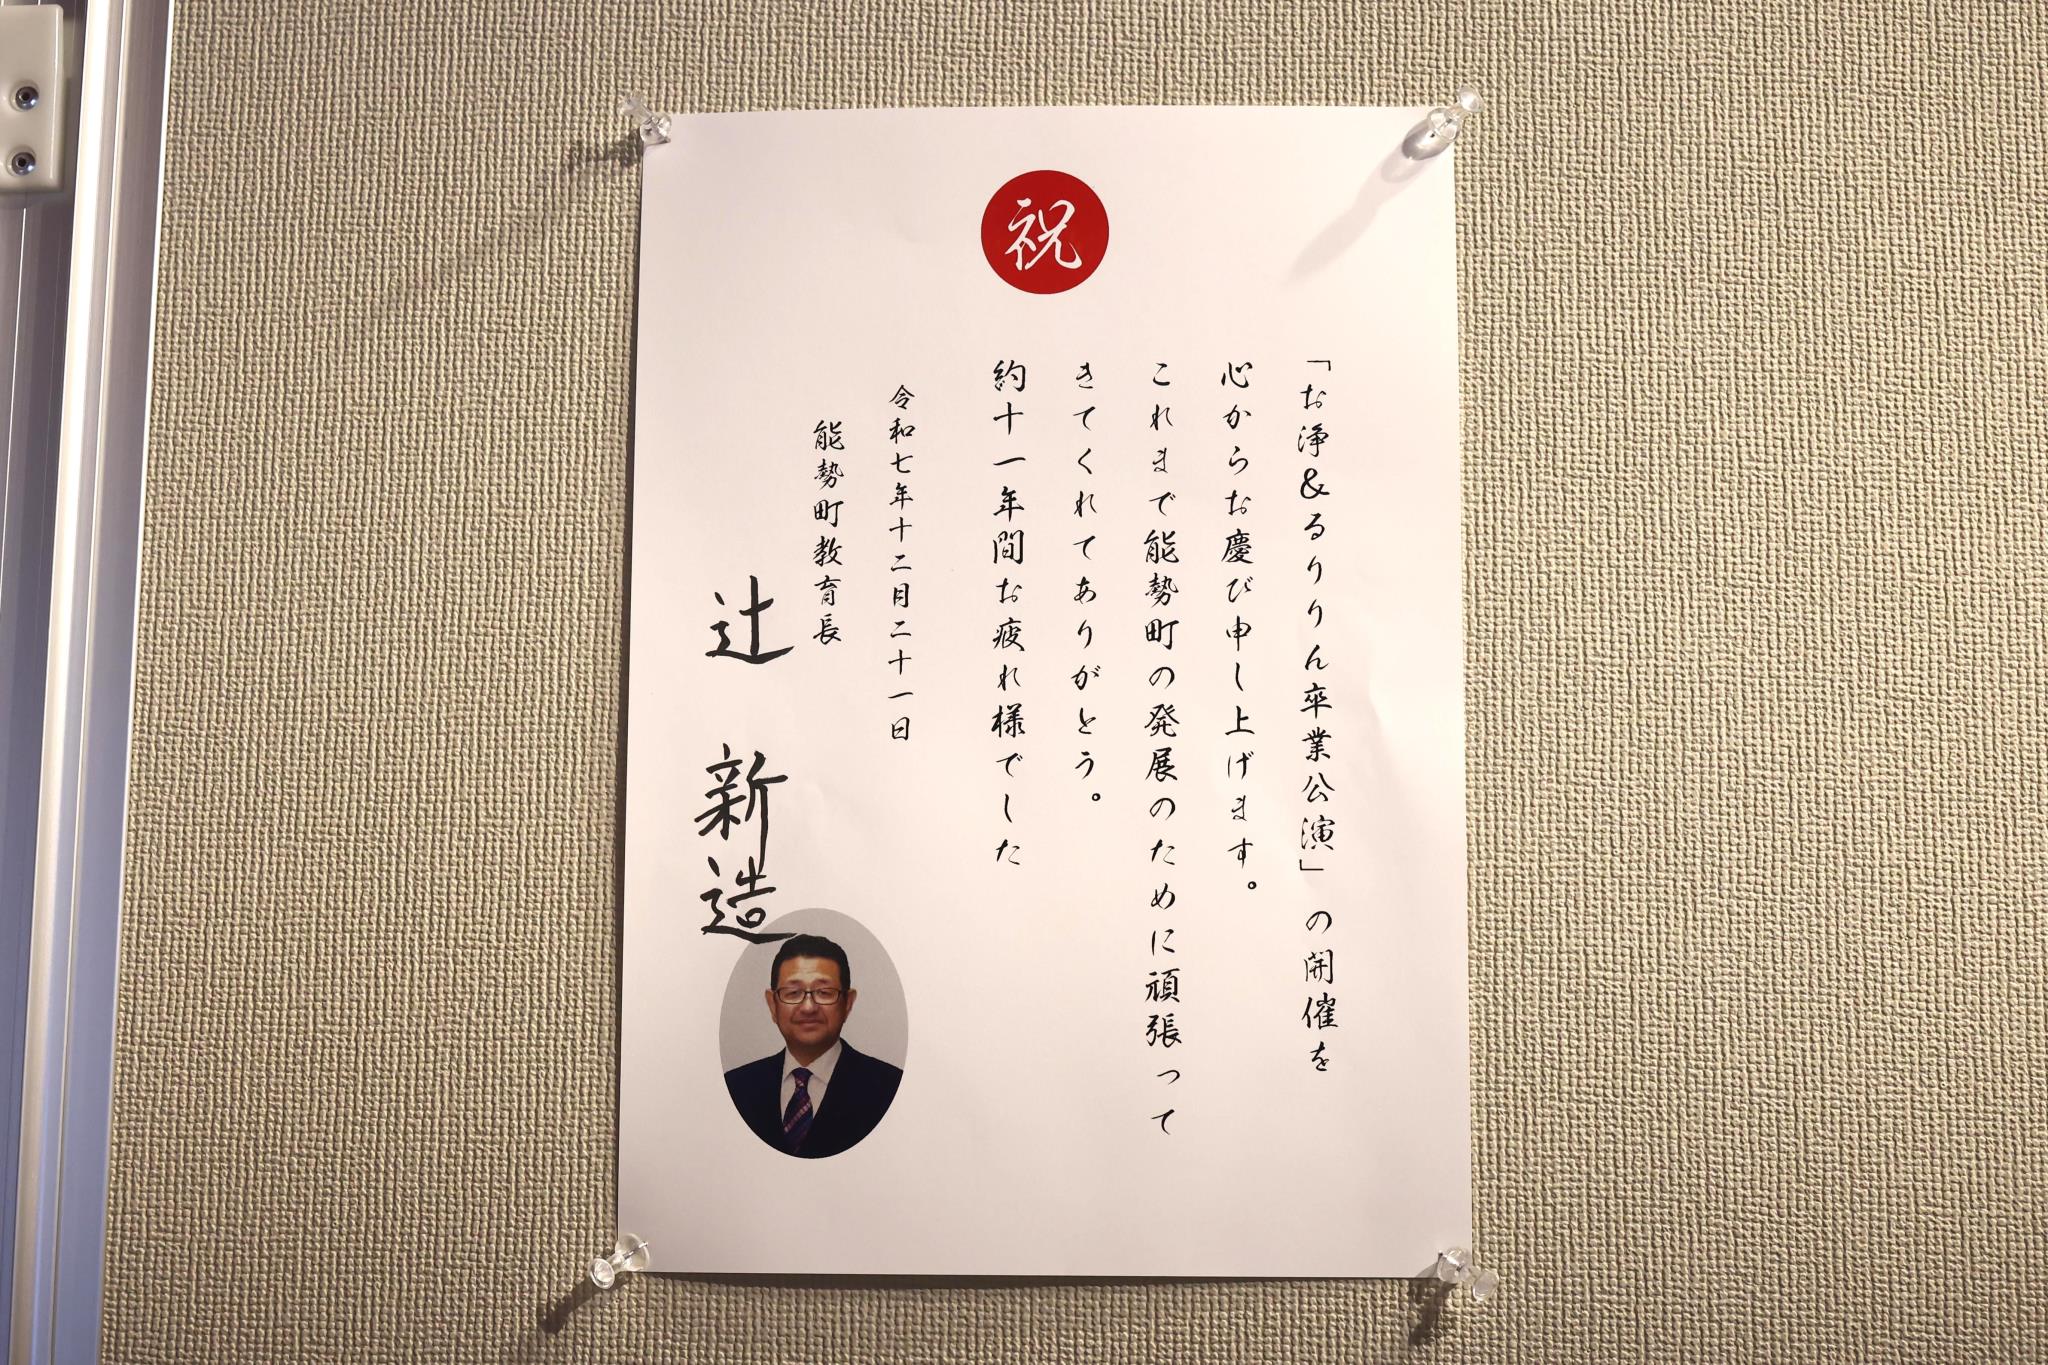 祝
「お浄&るりりん卒業公演」の開催を
心からお慶び申し上げます。
これまで能勢町の発展のために頑張って
きてくれてありがとう。
約十一年間お疲れ様でした
令和七年十二月二十一日
能勢町教育長
辻 新造